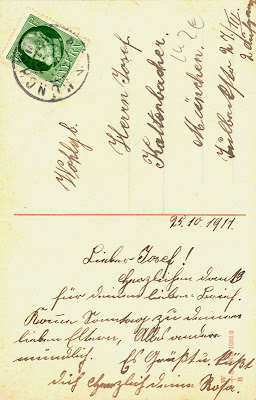 Wohlg.
Herrn Josef
Kaltenbacher.
München.
25.10.1911.
Lieber Josef!
Herzlichen Dank
für deinen lieben Brief.
Komme Sonntag zu deinen
lieben Eltern, Alles andere
mündlich. Es Grüßt u. küßt
dich herzlich deine Rosa.